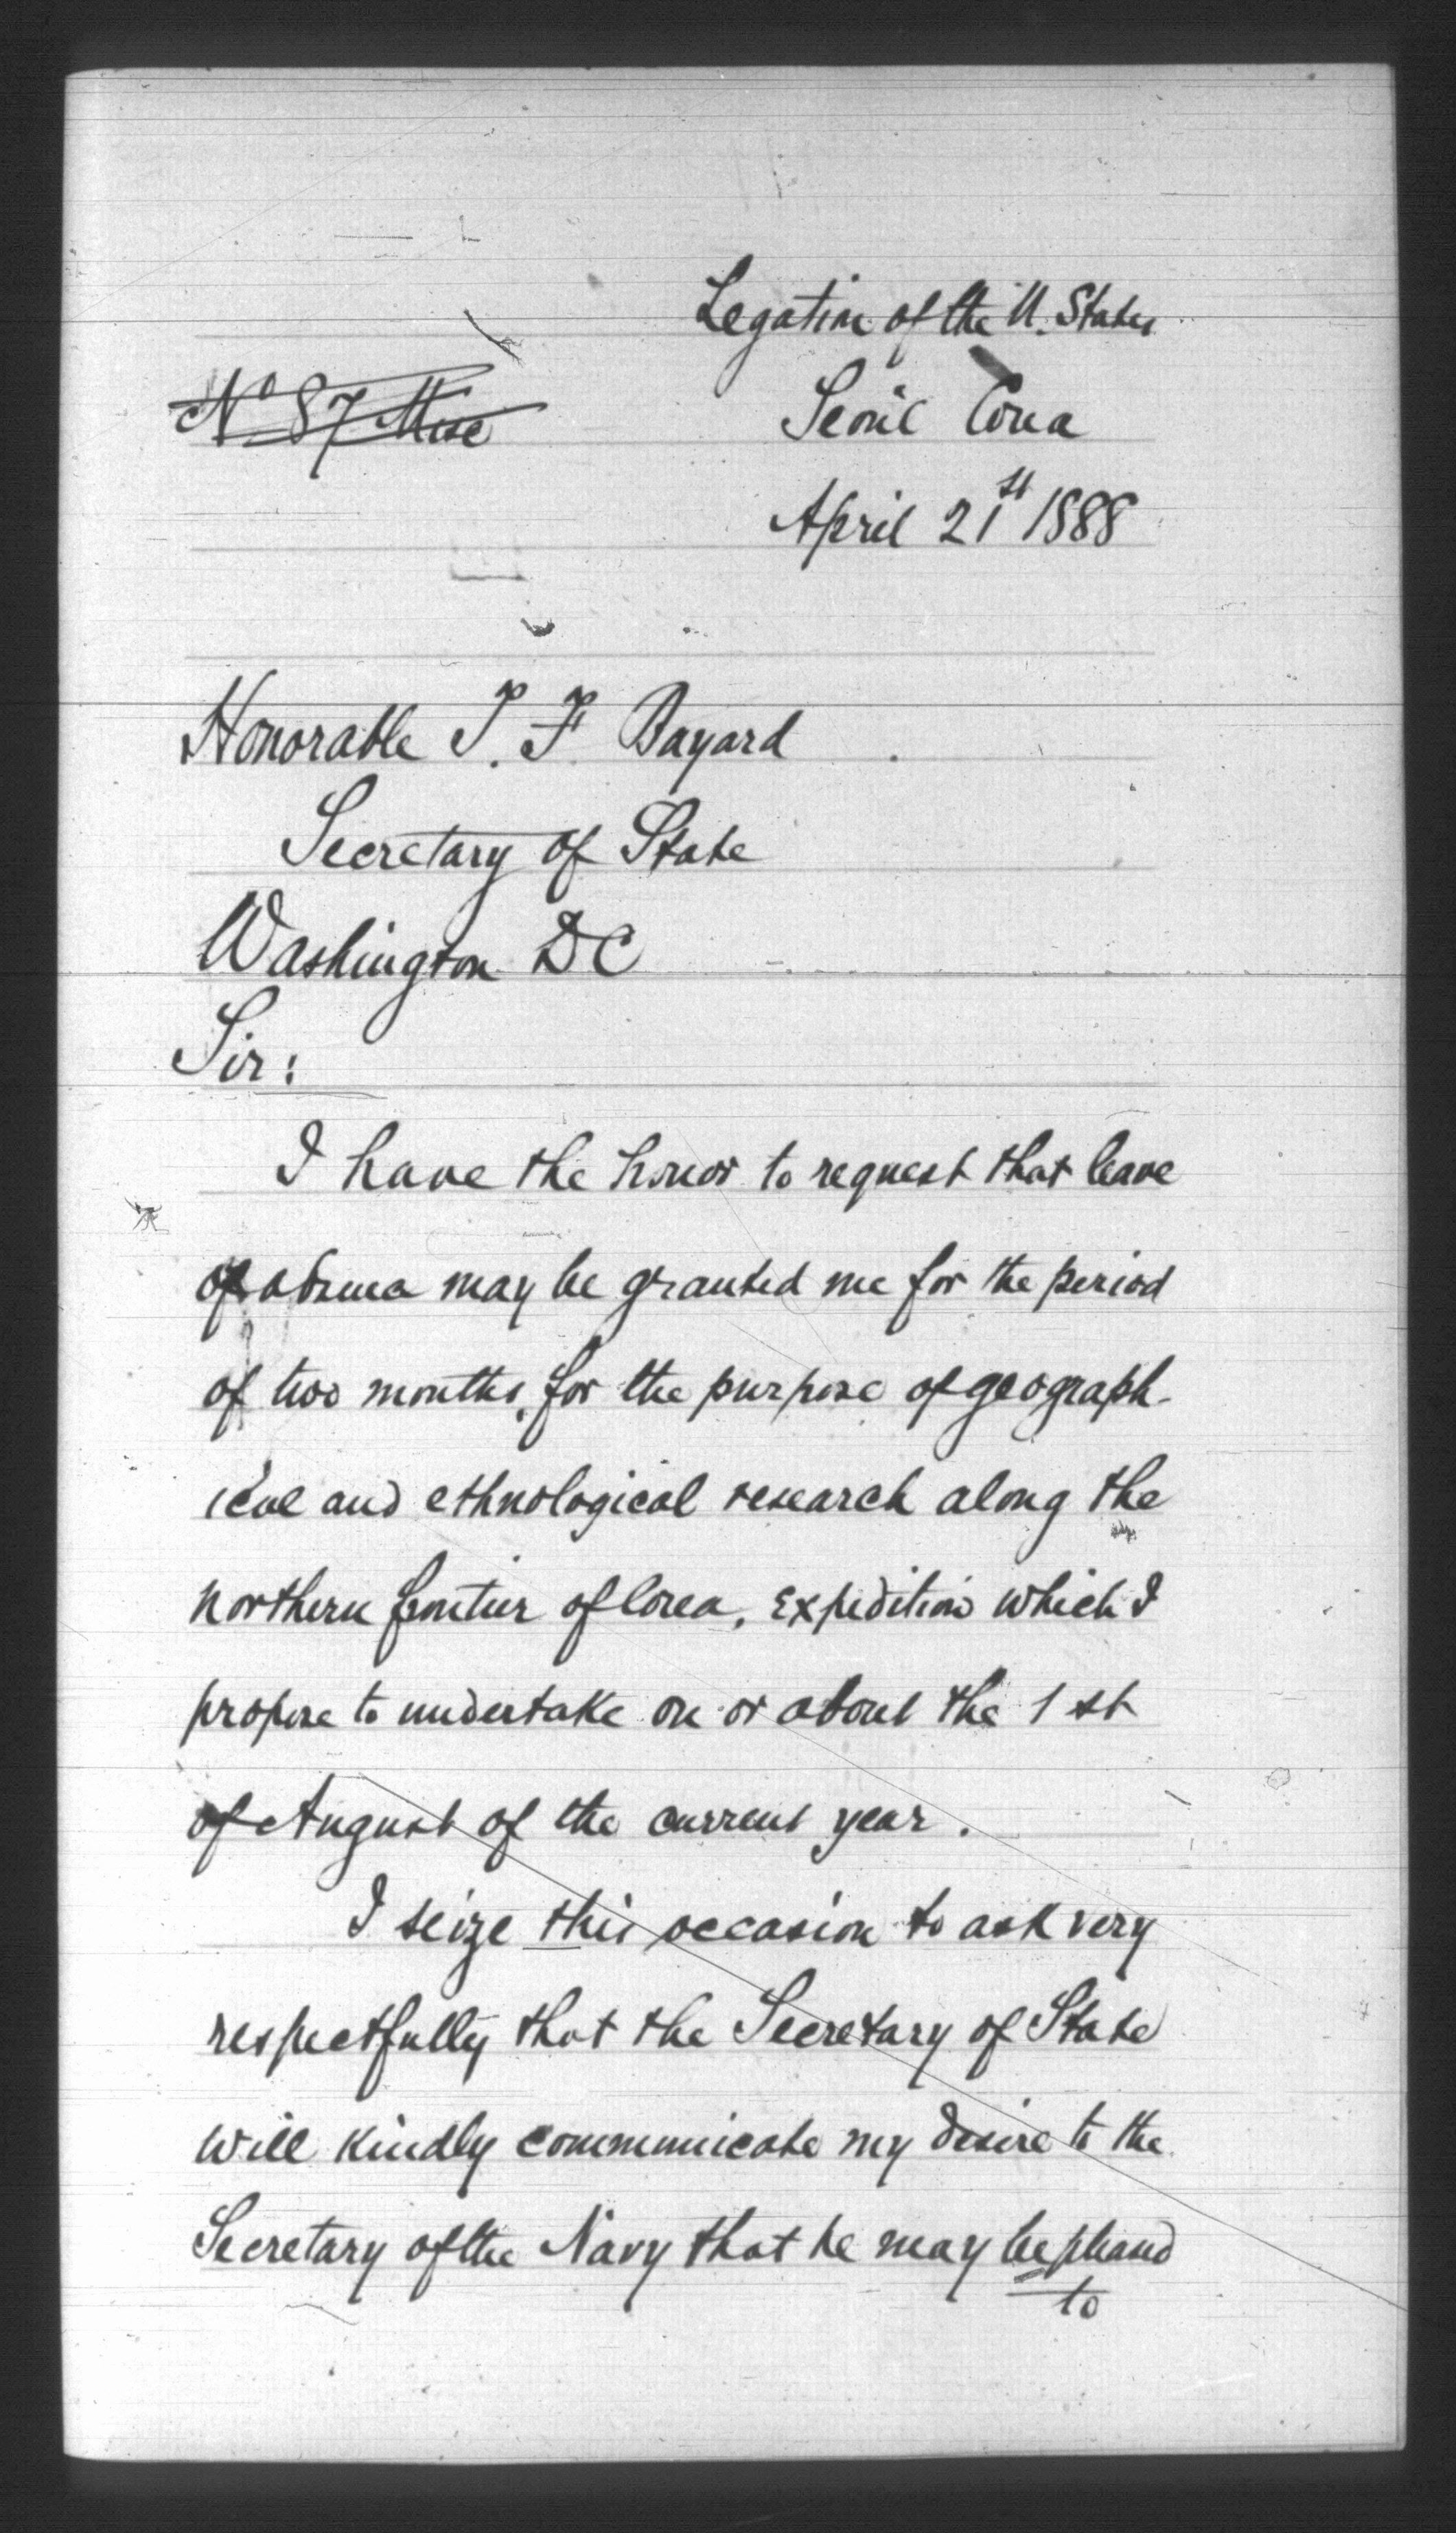 Legation of the U. States
Seoul Corea
Nº 87 Misc
April 21st 1888
Honorable T. F. Bayard
Secretary of State
Washington DC
Sir:
I have the honor to request that leave
of absence may be granted me for the period
of two months, for the purpose of geograph-
ical and ethnological research along the
northern frontier of Corea, expedition which I
propose to undertake on or about the 1st
of August of the current year.
I seize this occasion to ask very
respectfully that the Secretary of State
will kindly communicate my desire to the
Secretary of the Navy that he may be pleased
to